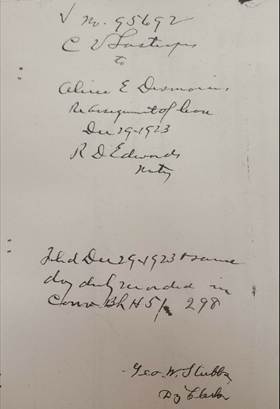 √ No. 95692
C V
to
Alice E Desmarais
Reassignment of lease
Dec 29-1923
R D Edwards
Noty
Filed Dec 29-1923 & same
day duly recorded in
Conv Bk H 51 298
Geo. W. Stubbs
Dy Clerk